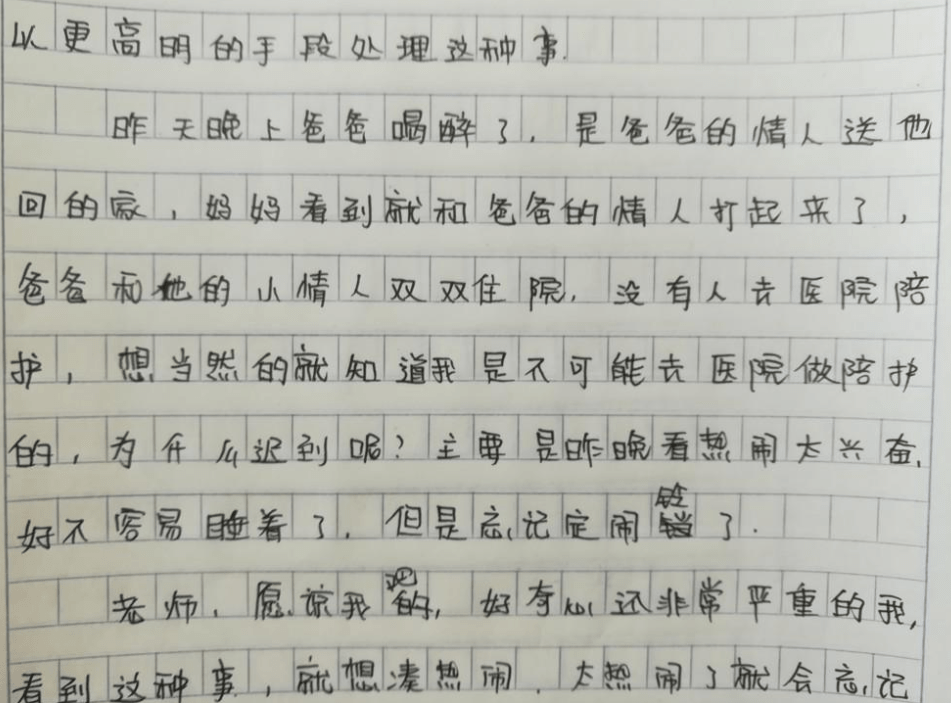 以更高明的手段处理这种事.
昨天晚上爸爸喝醉了,是爸爸的情人送他
回的家,妈妈看到就和爸爸的情人打起来了,
爸爸和他的小情人双双住院,没有人去医院陪
护,想当然的就知道我是不可能去医院做陪护
的,为什么迟到呢?主要是昨晚看热闹太兴奋,
好不容易睡着了,但是忘记定闹铃了.
老师,愿谅我吧,好奇心还非常严重的我,
看到这种事,就想凑热闹,太热闹了就会忘记